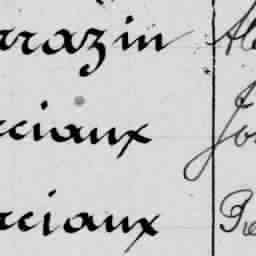 rrazin Al
rciaux Jo
rciaux Pie